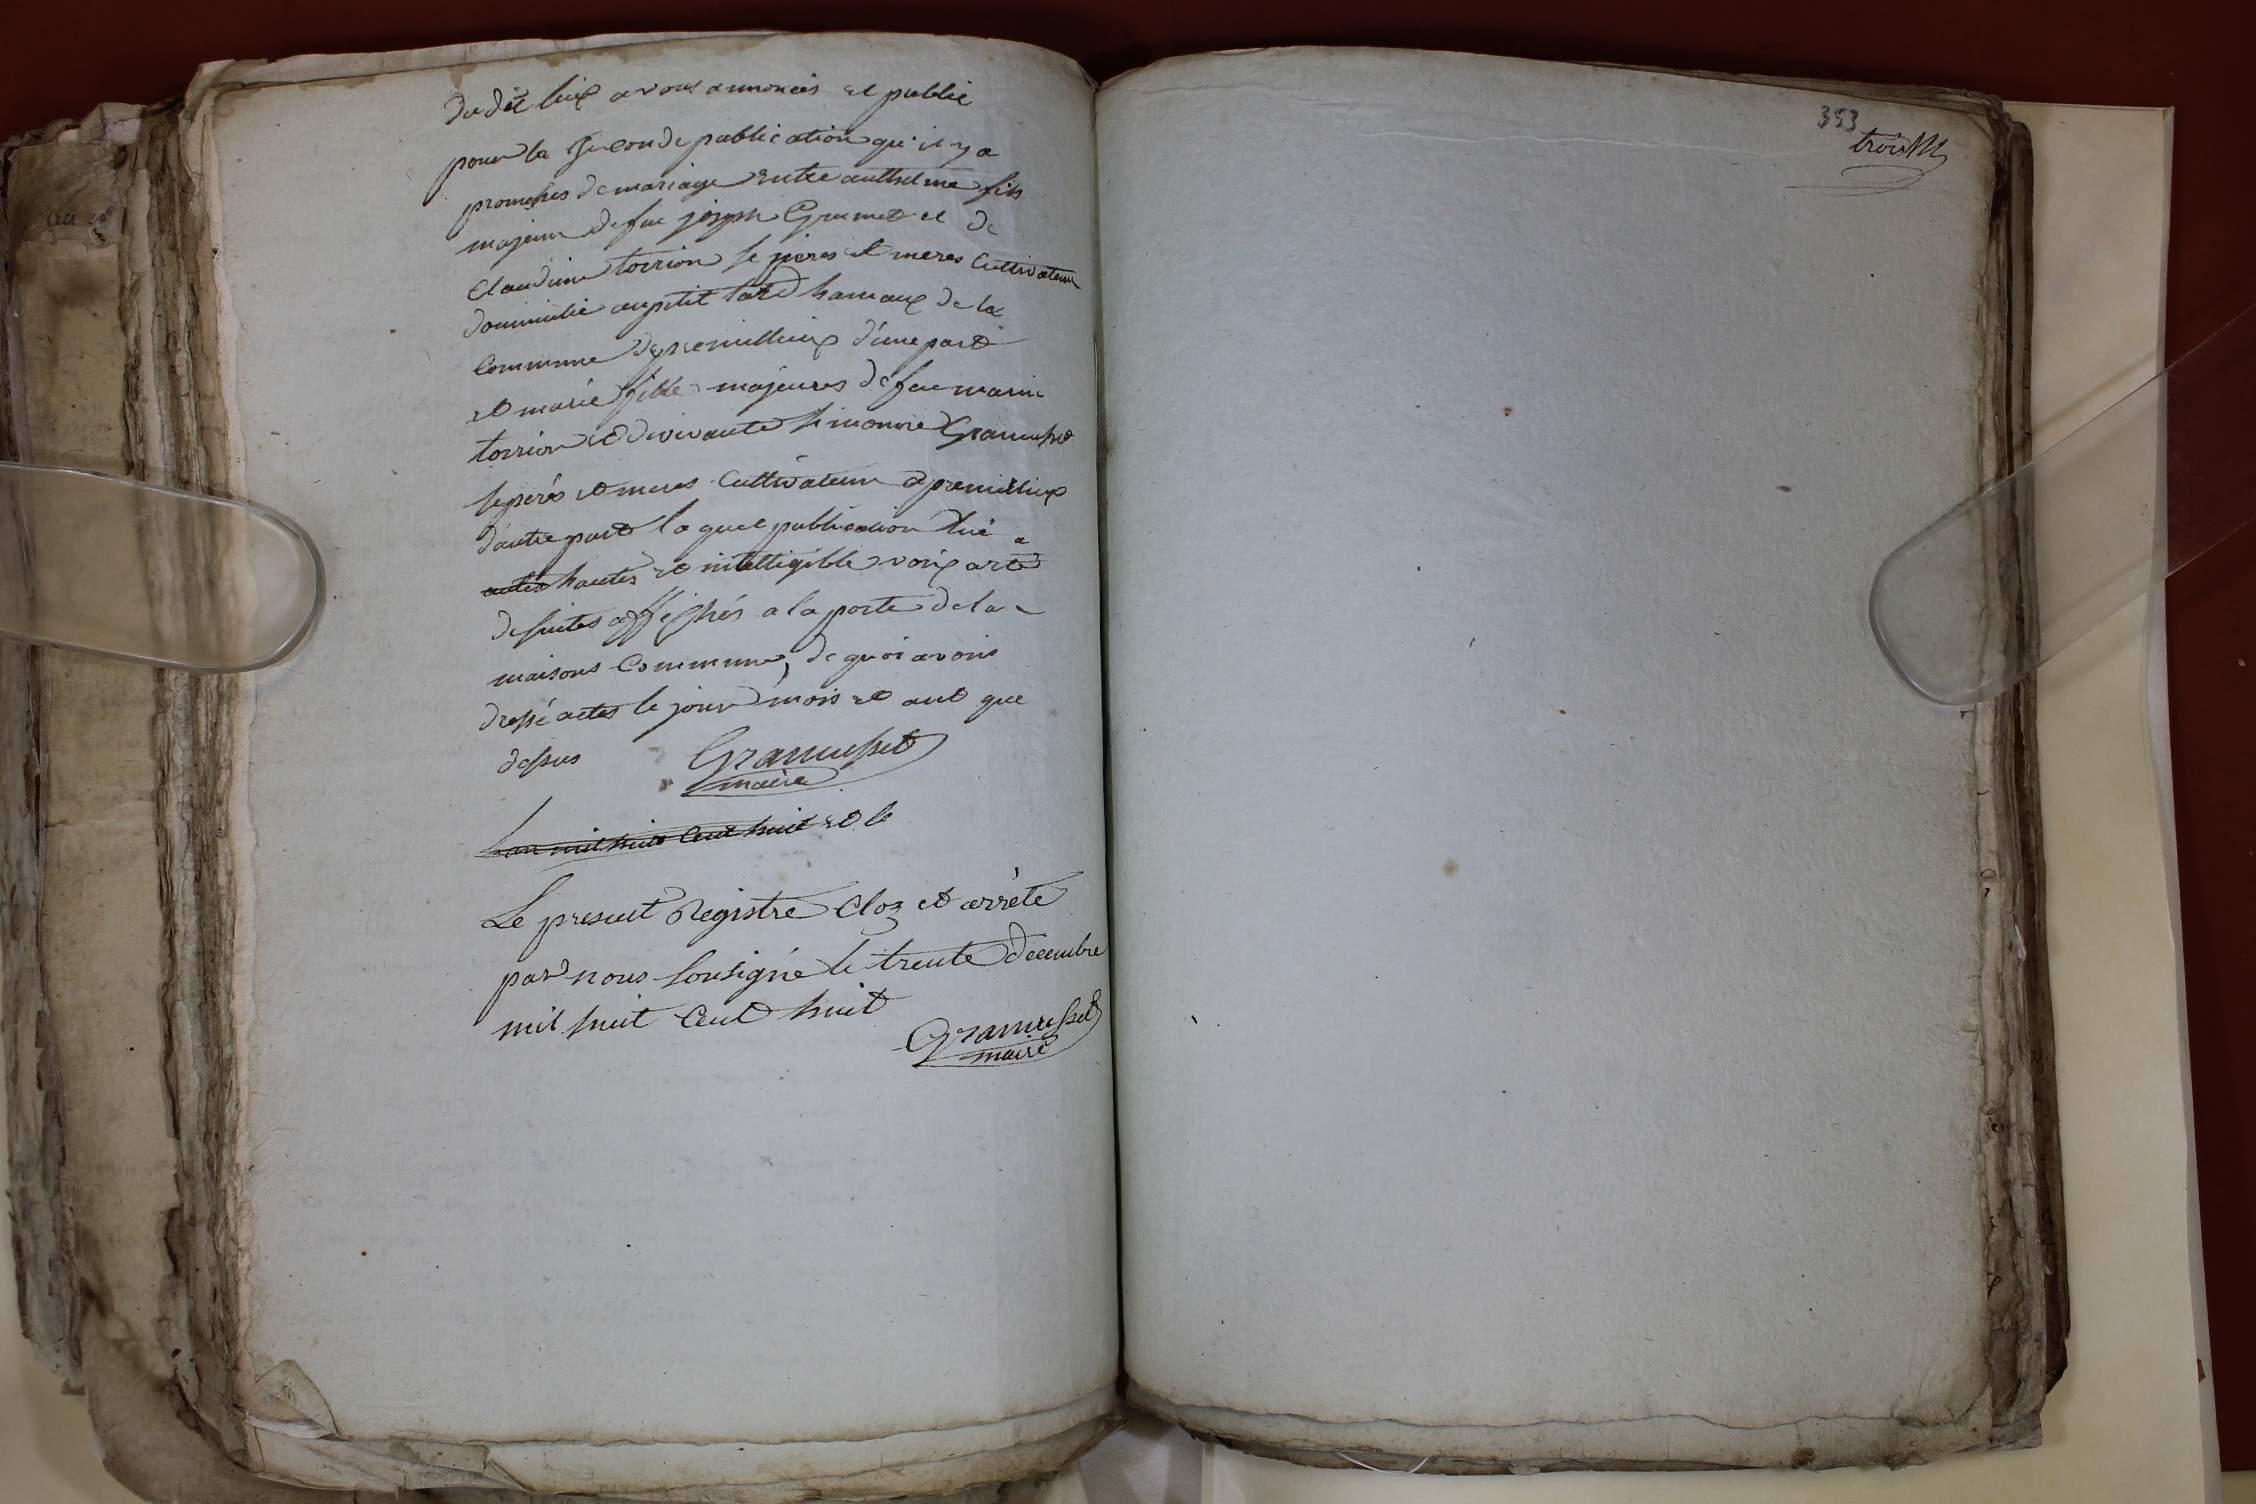 du dit lieux avons annoncés et publié
pour la seconde publication qu'il y a
promesses de mariage entre anthelme fils
majeur de feu joseph Grumet et de
Claudine torrion se peres et meres Cultivateur
domicilié au petit hameaux de la
Commune de premillieux d'une part
et marie fille majeures de feu marin
torrion et de vivante simonne Gramusset
se perés et meres Cultivateur a premillieux
d'autre part la quel publication lué a
hautes et intelligible voix a eté
de suites affichés a la porte de la
maisons Commune, de quoi avons
dressé actes le jour mois et ant que
dessus Gramusset
maire
Lan mil huit Cent huit et le
Le present Registre Cloz et arrété
par nous Sousigné le trente decembre
mil huit Cent huit
Gramusset
maire
353
trois